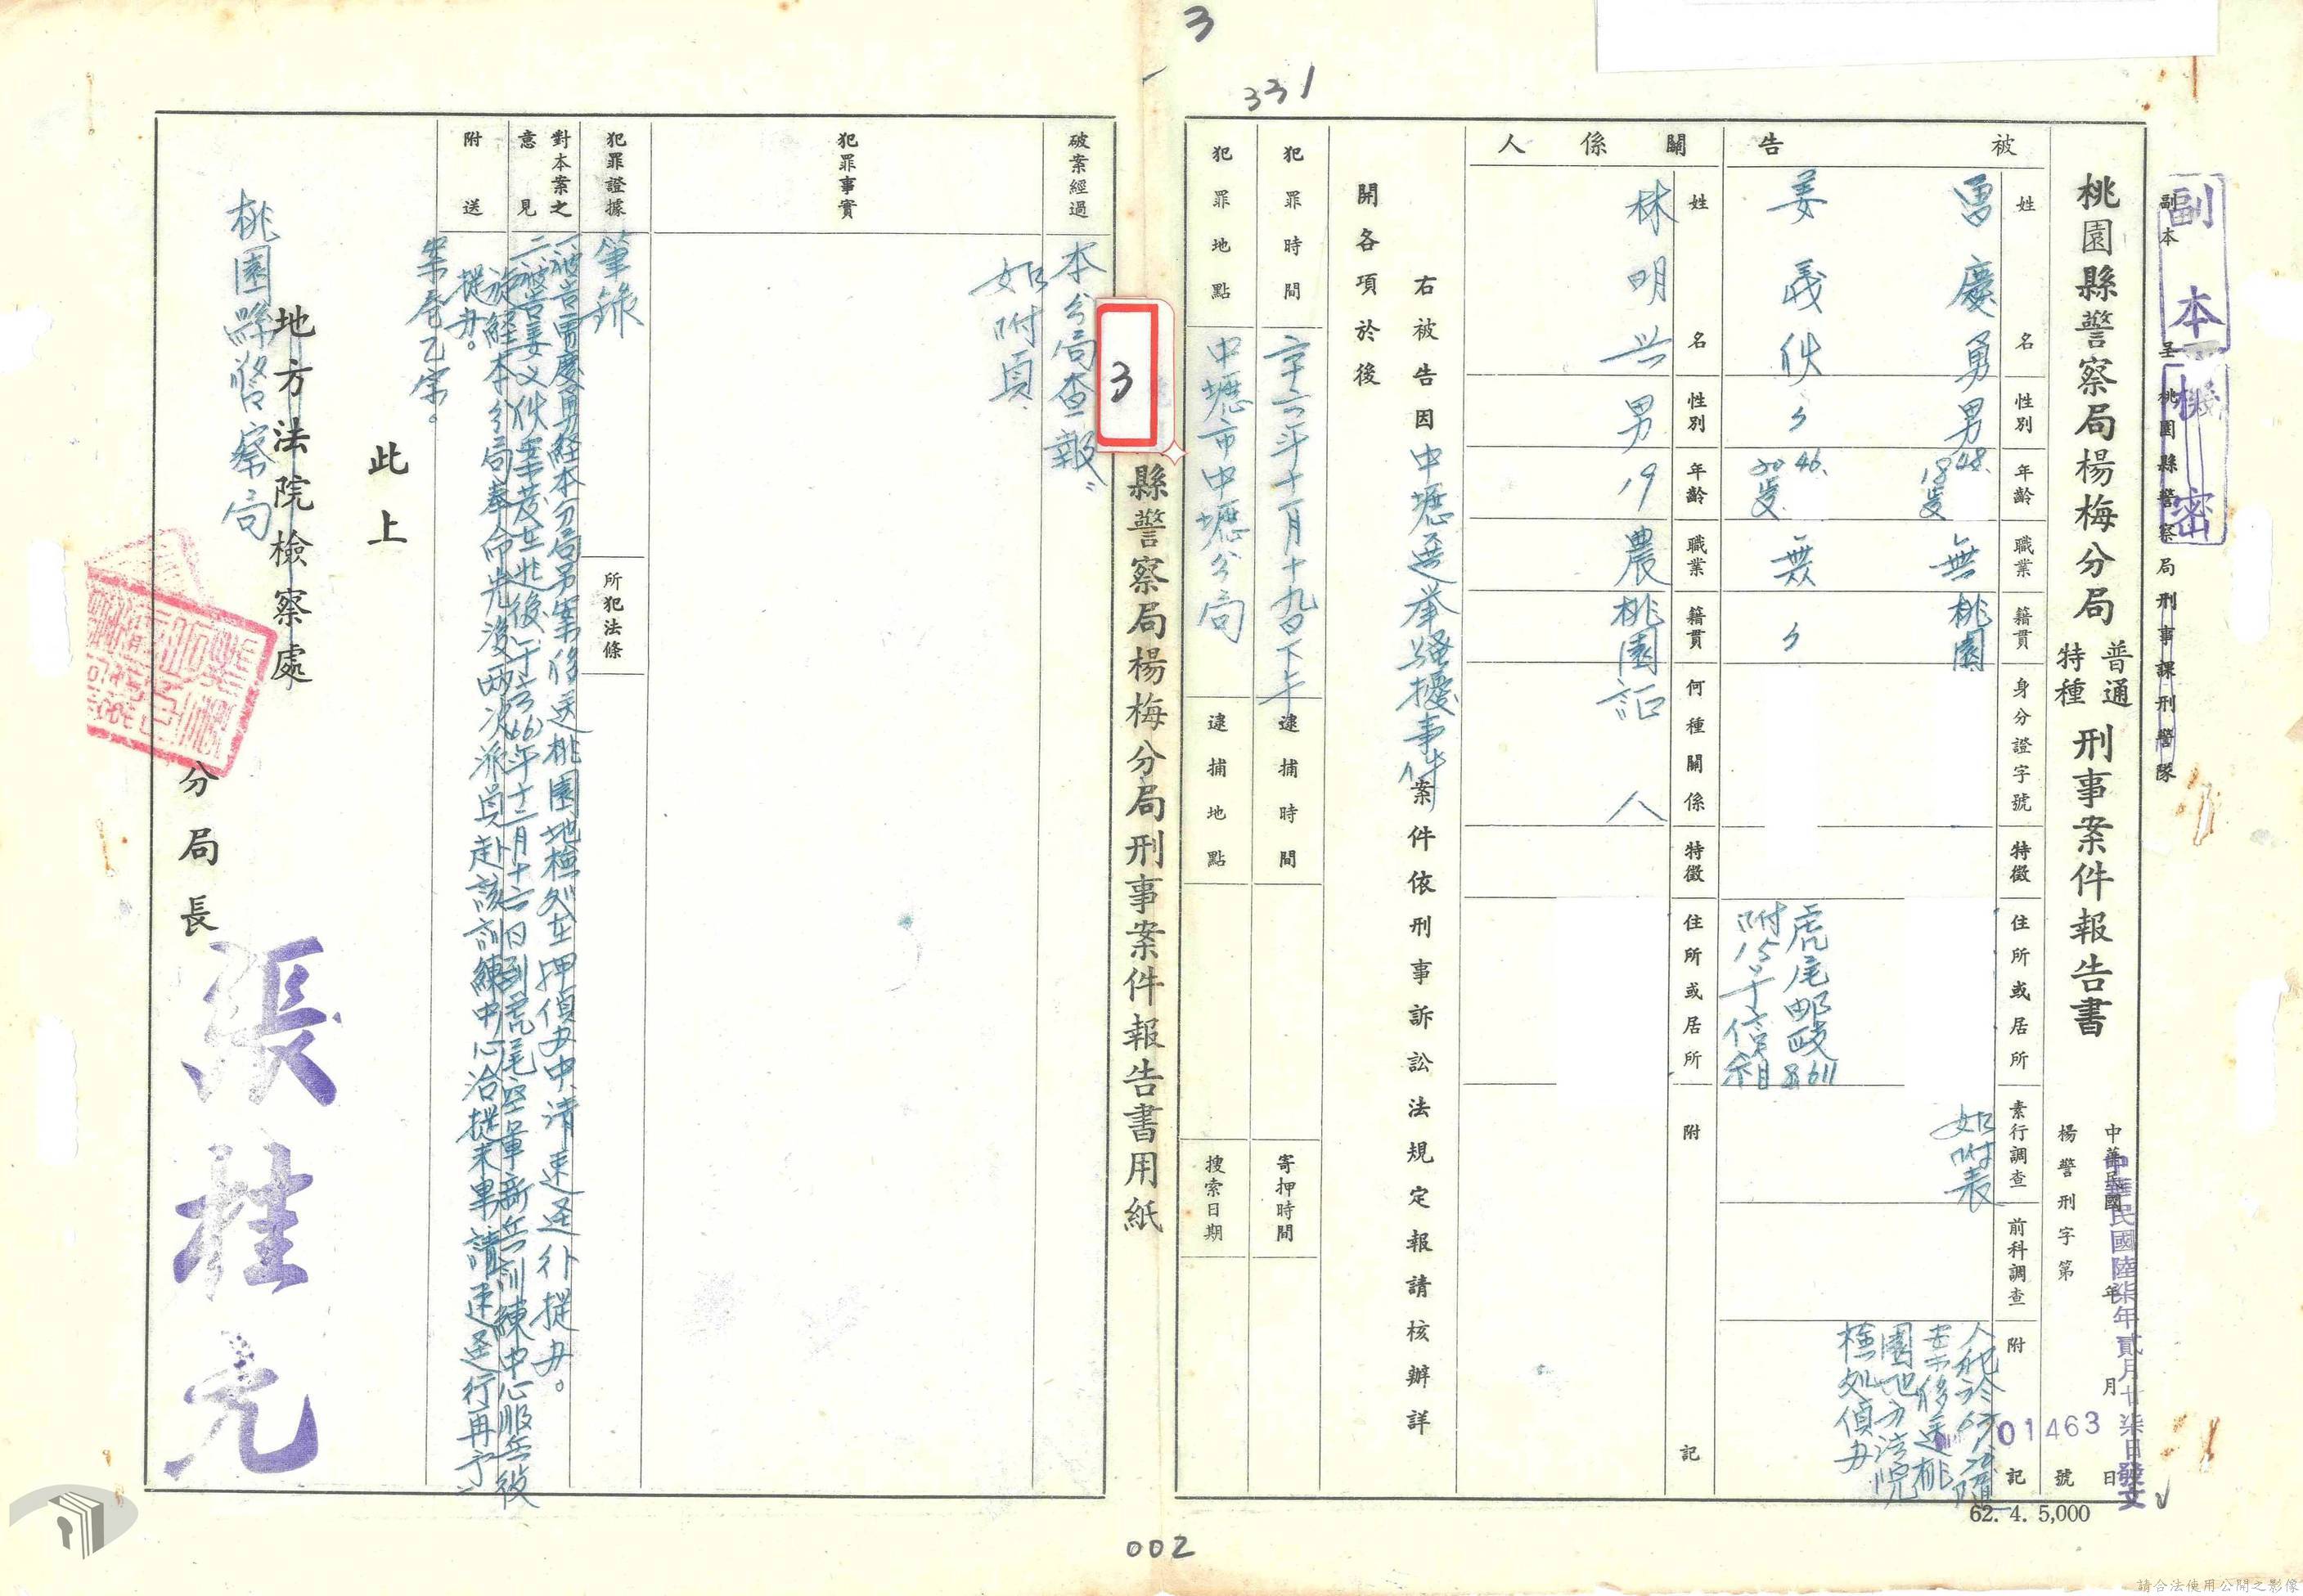 3
331
副本
機密
副本
呈 桃園縣警察局刑事課刑警隊
桃園縣警察局楊梅分局
普通
特種
刑事案件報告書
中華民國 年 月 日
中華民國陸柒年貳月廿柒日發文
楊警刑字第 號
01463
被告
姓名
性別
年齡
職業
籍貫
身分證字號
特徵
住所或居所
素行調查
前科調查
附記
慶勇
男
48.
18歲
無
桃園
如附表
人犯於67.1.20隨
案移送桃
園地方法院
檢處偵办
姜義伙
〃
46.
20歲
無
〃
虎尾郵政8611
附15号信箱
關係人
姓名
性別
年齡
職業
籍貫
何種關係
特徵
住所或居所
附記
林明兴
男
19
農
桃園
証人
右被告因中壢選举騷擾事件案件依刑事訴訟法規定報請核辦詳
開各項於後
犯罪時間
六六年十一月十九日下午
逮捕時間
寄押時間
犯罪地點
中壢市中壢分局
逮捕地點
搜索日期
3
縣警察局楊梅分局刑事案件報告書用紙
破案經過
本分局查報。
犯罪事實
如附頁
犯罪證據
筆錄
所犯法條
對本案之
意見
一、被告曾慶勇経本分局另案移送桃園地檢処在押偵办中、請速逕行提办。
二、被告姜义伙案發在北後、于六六(66)年十二月十六日到虎尾空軍新兵訓練中心服兵役
旋経本分局奉命先後两次派員赴該訓練中心洽提未果請速逕行再予
提办。
附送
案卷乙宗。
此上
地方法院檢察處
桃園縣警察局
分局長
張桂
62. 4. 5,000
002
請合法使用公開之影像